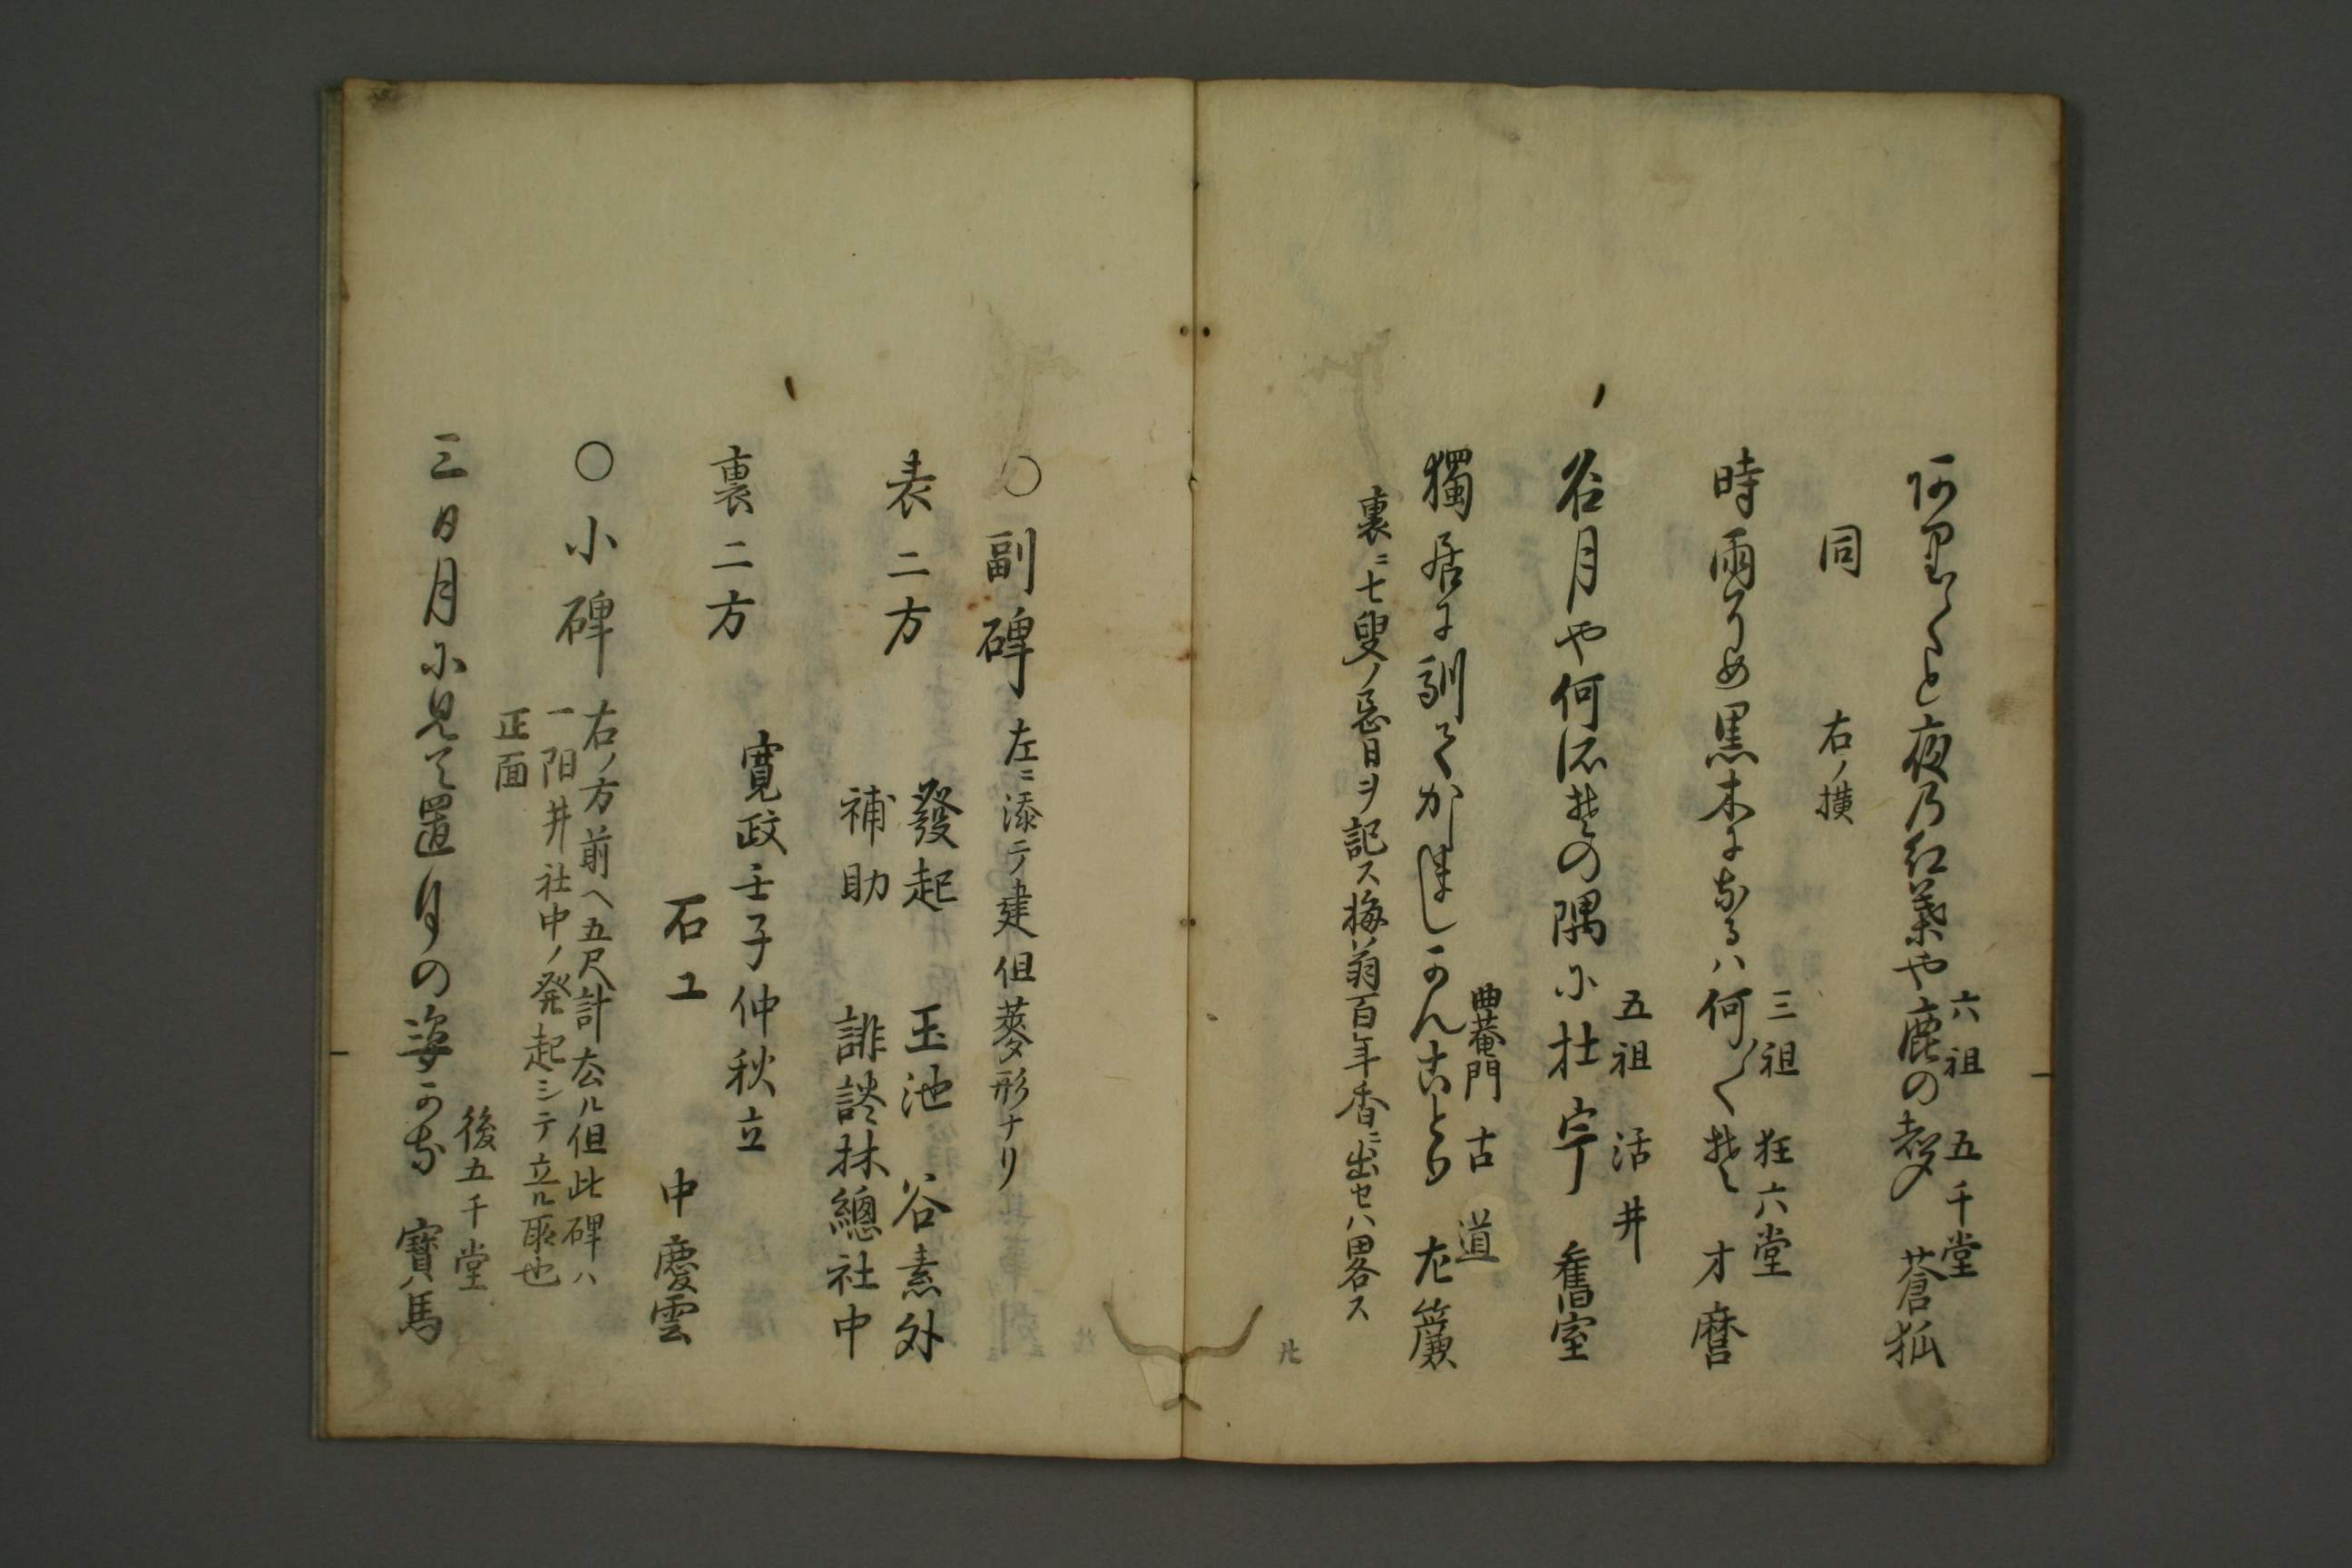 六祖 五千堂
と夜乃紅葉や鹿の聲 蒼狐
同 右ノ横
三祖 狂六堂
時雨 黒木に ハ何 才麿
五祖 活井
名月や何 の隅に 舊室
曲菴門 古道
獨居に馴てか 左簾
裏ニ七叟ノ忌日ヲ記ス梅翁百年香ニ出セハ畧ス
○副碑 左ニ添テ建但菱形ナリ
表二方 發起 玉池 谷素外
補助 誹談林總社中
裏二方 寛政壬子仲秋立
石工 中慶雲
○小碑 右ノ方前ヘ五尺計 ル但此碑ハ
一陽井社中ノ発起シテ立ル所也
正面
後五千堂
三日月に見て置 の姿かな 寶馬